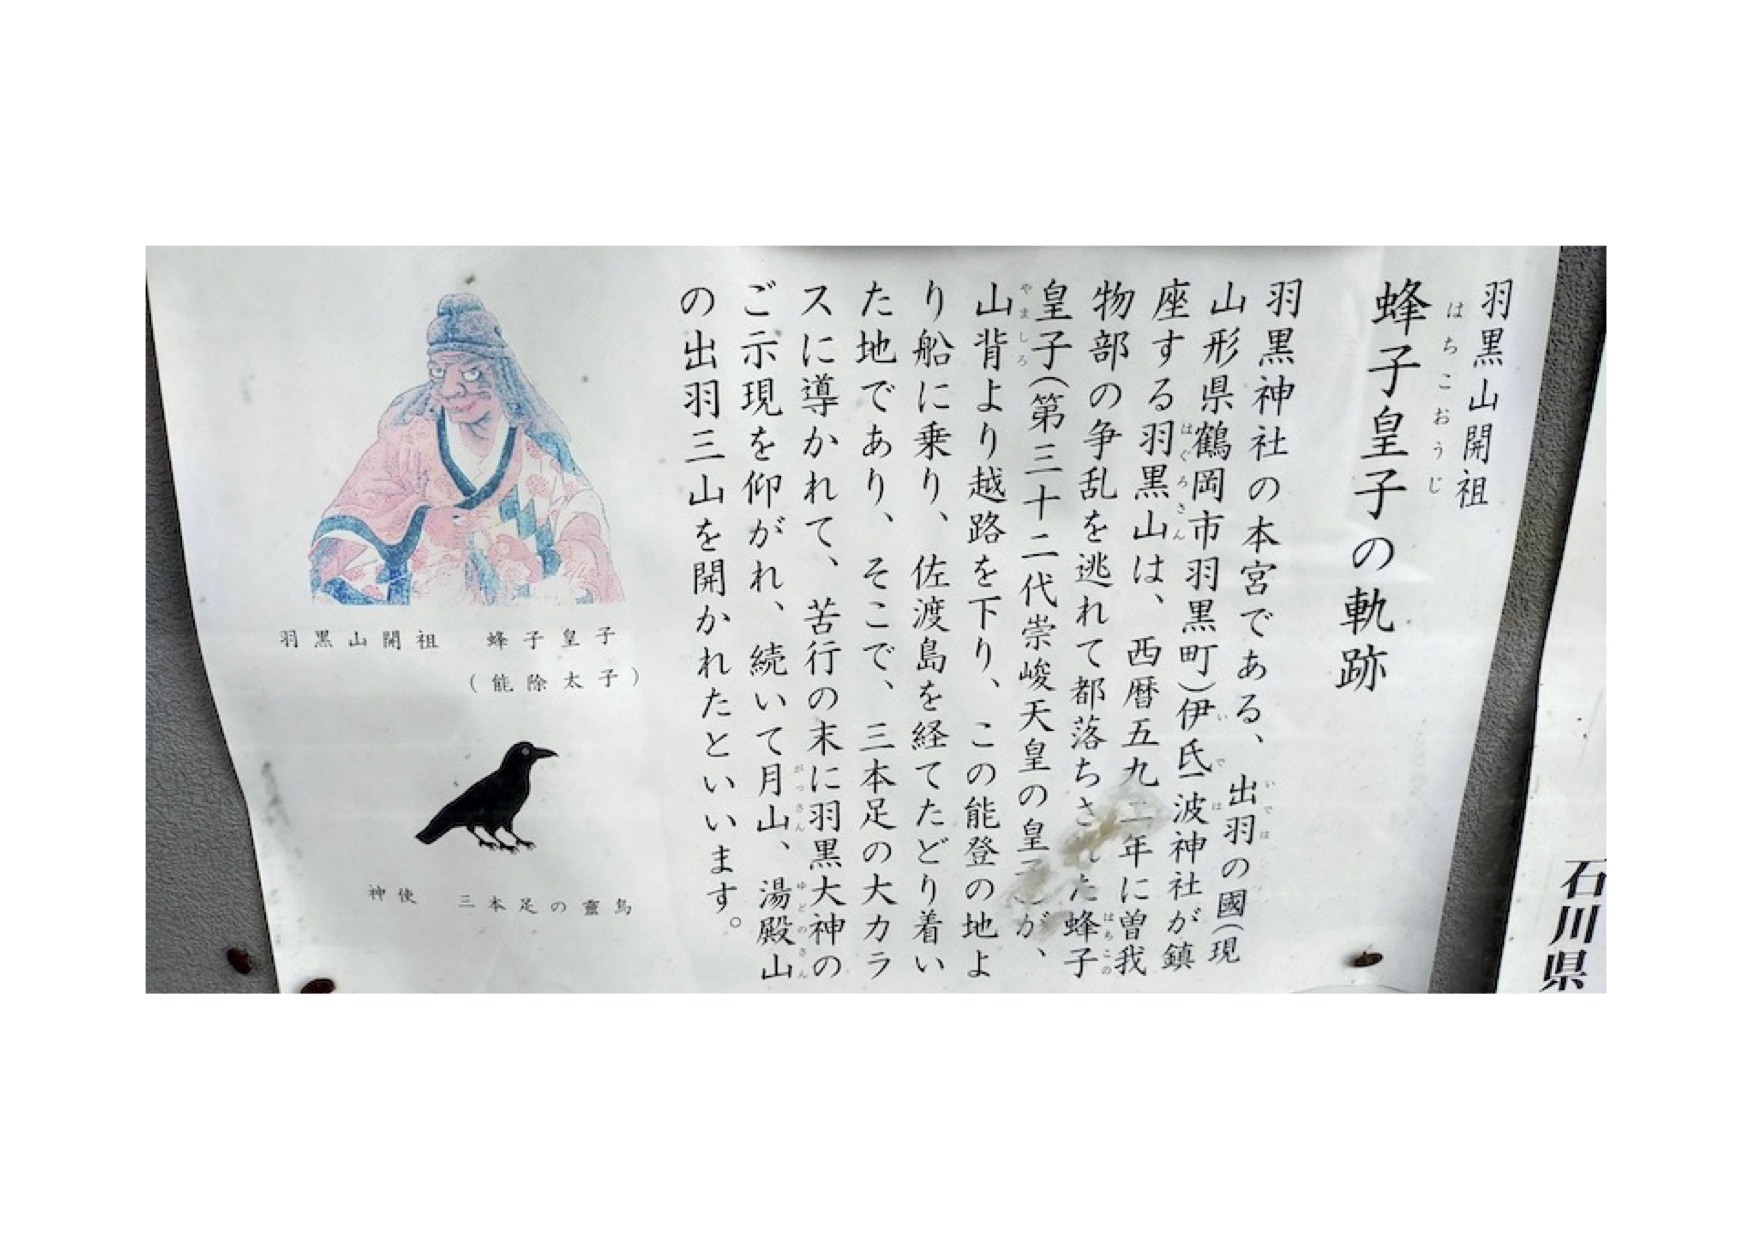 羽黒山開祖
蜂子皇子の軌跡
はちこおうじ
羽黒神社の本宮である、出羽の國(現
いでは
山形県鶴岡市羽黒町)伊氐波神社が鎮
いでは
座する羽黒山は、西暦五九二年に曽我
はぐろさん
物部の争乱を逃れて都落ちされた蜂子
はちこの
皇子(第三十二代崇峻天皇の皇子)が、
山背より越路を下り、この能登の地よ
やましろ
り船に乗り、佐渡島を経てたどり着い
た地であり、そこで、三本足の大カラ
スに導かれて、苦行の末に羽黒大神の
ご示現を仰がれ、続いて月山、湯殿山
がっさん
ゆどのさん
の出羽三山を開かれたといいます。
羽黒山開祖 蜂子皇子
(能除太子)
神使 三本足の靈烏
石川県